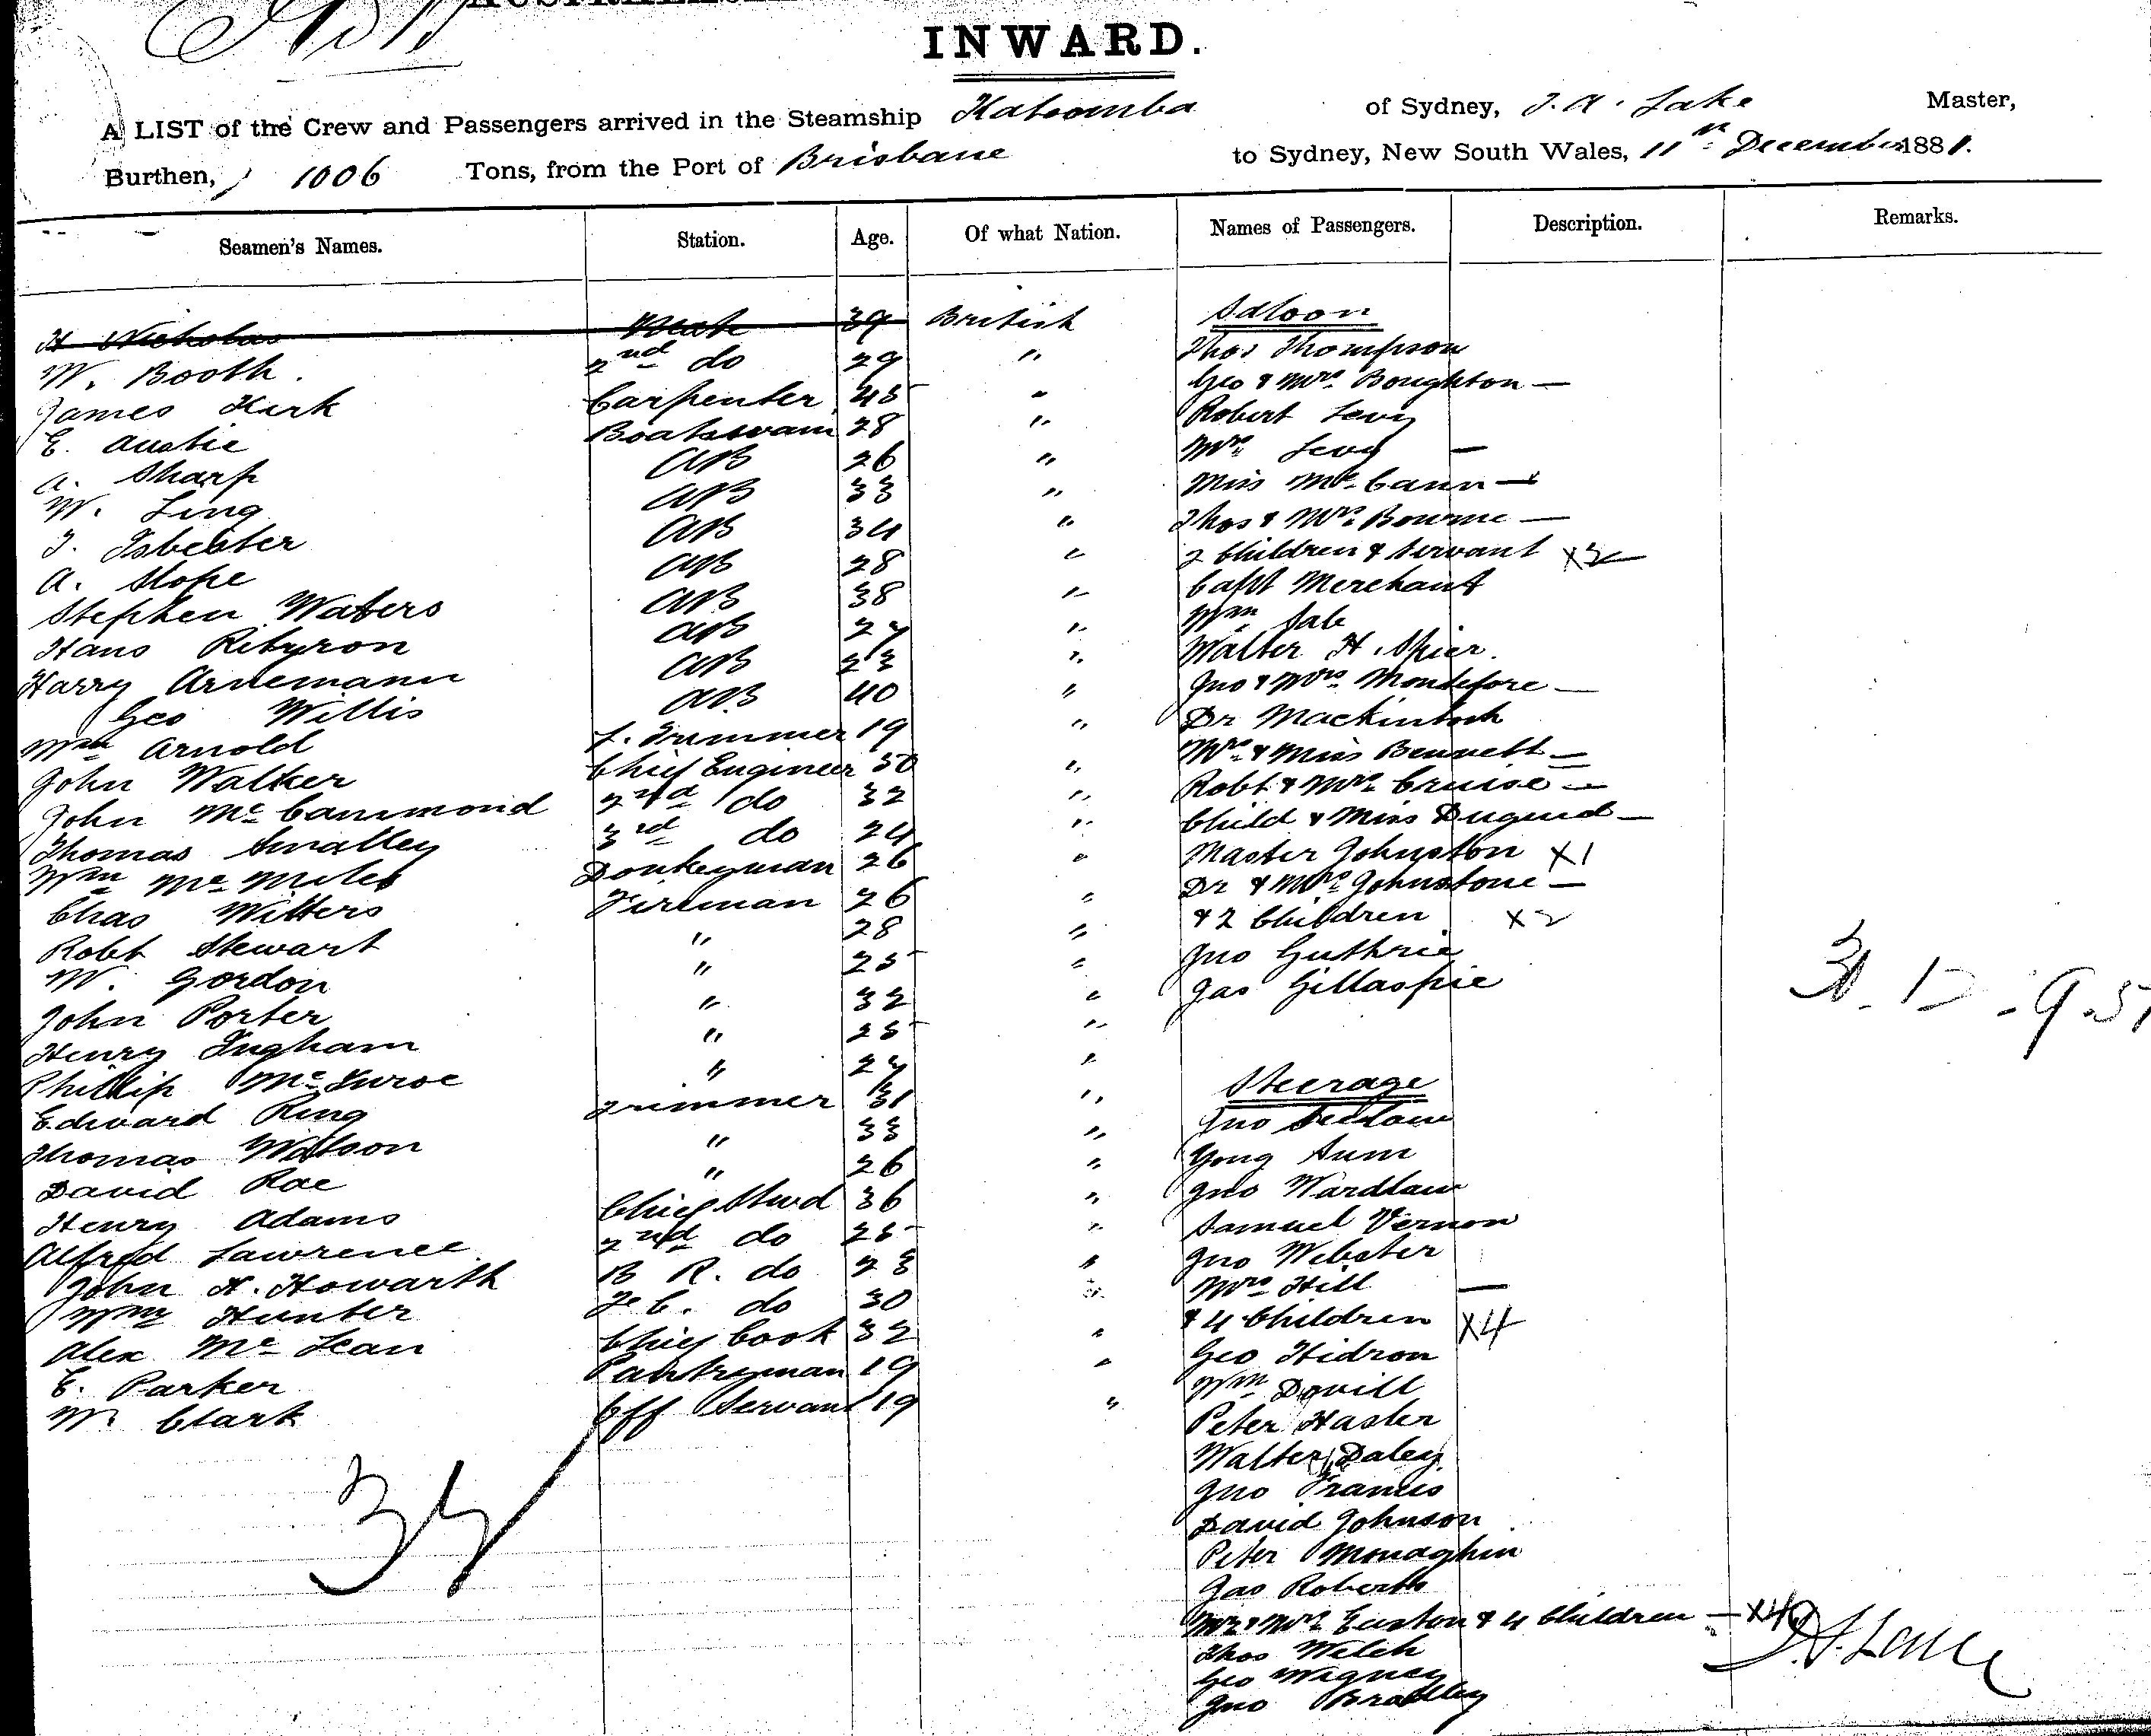 INWARD.
A LIST of the Crew and Passengers arrived in the Steamship Katoomba of Sydney, J. A. Lake Master,
Burthen, 1006 Tons, from the Port of Brisbane to Sydney, New South Wales, 11th December 1881.
Seamen's Names. Station. Age. Of what Nation. Names of Passengers. Description. Remarks.
H Nicholas Mate 39 British Saloon
W. Booth. 2nd do 29 " Thos Thompson
James Kirk Carpenter 45 " Geo & Mrs Boughton —
E. Austie Boatswain 28 " Robert Levy
A. Sharp AB 26 " Mrs Levy —
W. Ling AB 33 " Miss McCann —
J. Isbester AB 34 " Thos & Mrs Bourne —
A. Slope AB 28 " 2 Children & Servant X2
Stephen Waters AB 38 " Capt Merchant
Hans AB 27 " Wm
Harry Arnemann AB 23 " Walter H. Spier.
Geo Willis AB 40 " Jno & Mrs Montefore —
Wm Arnold L. Trimmer 19 " Dr Mackintosh
John Walker Chief Engineer 50 " Mrs & Miss Bennett —
John McCammond 2nd do 32 " Robt & Mrs Cruise —
Thomas Smalley 3rd do 24 " Child & Miss Duguid —
Wm Donkeyman 26 " Master Johnston X1
Chas Witters Fireman 26 " Dr & Mrs Johnstone —
Robt Stewart " 28 " & 2 Children X2
W. Gordon " 25 " Jno Guthrie
John Porter " 32 " Jas Gillaspie
Henry Ingham " 25 "
Phillip " 27 " Steerage
Edward Ring Trimmer 31 " Jno
Thomas Watson " 33 " Yong Sum
David Rae " 26 " Jno Wardlaw
Henry Adams Chief Stwd 36 " Samuel Vernon
Alfred Lawrence 2nd do 25 " Jno Webster
John H. Howarth B R. do 23 " Mrs Hill —
Wm Hunter F C. do 30 " & 4 Children X4
Alex McLean Chief Cook 32 " Geo Hidron
E. Parker Pantryman 19 " Wm Dovill
W. Clark Off Servant 19 " Peter Hasler
Walter Daley
Jno Francis
David Johnson
Peter Monaghin
Jas Roberts
Mr & Mrs Euston & 4 Children — X4
Thos Welch
Geo Wagney
Jno Bradley